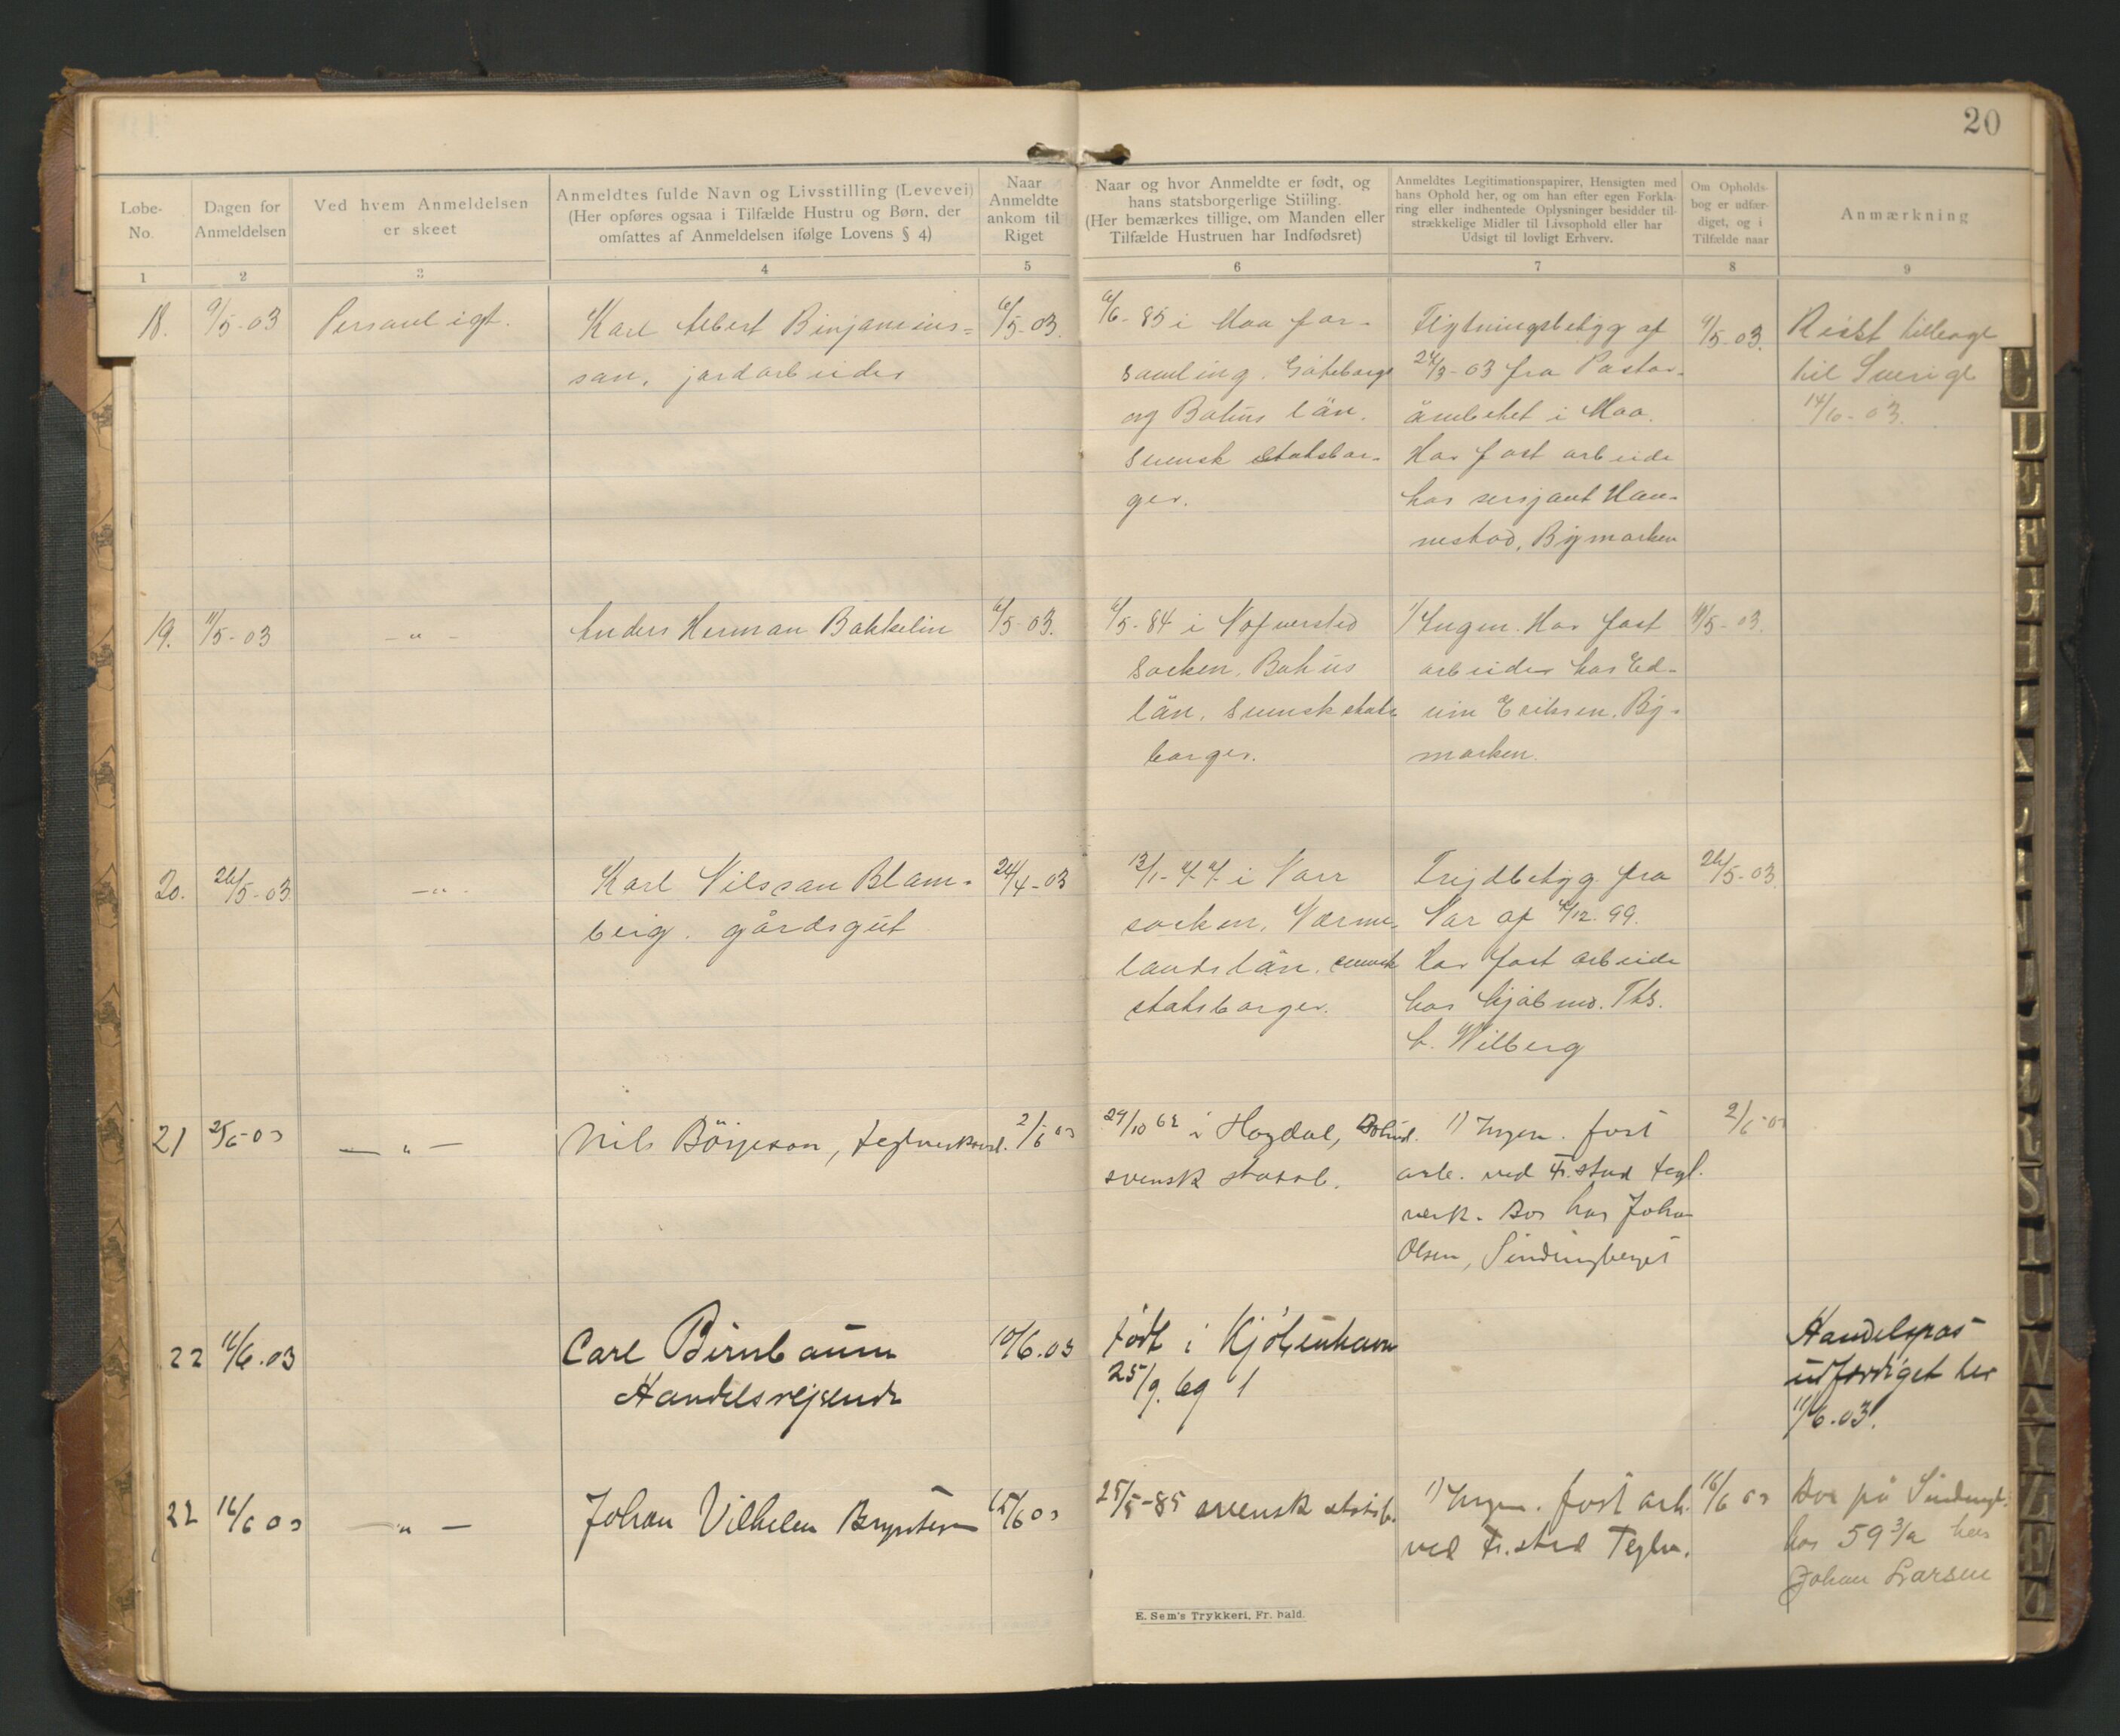 20
Løbe-
No.
Dagen for
Anmeldelsen
Ved hvem Anmeldelsen
er skeet
Anmeldtes fulde Navn og Livsstilling (Levevei)
(Her opføres ogsaa i Tilfælde Hustru og Børn, der
omfattes af Anmeldelsen ifølge Lovens § 4)
Naar
Anmeldte
ankom til
Riget
Naar og hvor Anmeldte er født, og
hans statsborgerlige Stilling.
(Her bemærkes tillige, om Manden eller
Tilfælde Hustruen har Indfødsret)
Anmeldtes Legitimationspapirer, Hensigten med
hans Ophold her, og om han efter egen Forkla-
ring eller indhentede Oplysninger besidder til-
strækkelige Midler til Livsophold eller har
Udsigt til lovligt Erhverv.
Om Opholds-
bog er udfær-
diget, og i
Tilfælde naar
Anmærkning
1 2 3 4 5 6 7 8 9
18.
9/5-03
Personligt.
Karl Albert Binjamins=
son, jordarbeider
6/5-03.
6/6-85 i Moo for-
samling. Göteborgs
og Bohus län.
Svensk statsbor-
ger.
Flytningsbetyg af
24/3-03 fra Pastor-
ämbetet i Moo.
Har fast arbeide
hos sersjant Han-
nestad, Bymarken
9/5-03.
Reist tilbage
til Sverige
14/10-03.
19.
11/5-03
- " -
Anders Herman Bakkelin
6/5-03.
6/5-84 i Nafversted
Socken, Bohus
län, Svensk stats
borger.
1/ Ingen. Har fast
arbeider hos Ed-
vin Eriksen, By-
marken.
11/5-03.
20.
26/5-03
- " -
Karl Nilsson Blom-
berg. gårdsgut
24/4-03
13/1-77 i Norr
socken, Værm-
lands län, svensk
statsborger.
Frejdbetyg fra
Nor af 4/12-99.
Har fast arbeide
hos kjøbmd. Ths.
b. Wilberg
26/5-03.
21
2/6-03
- " -
Nils Börjeson, teglverksarb.
2/6 03
29/10 62 i Hogdal, Bohusl.
svensk statsb.
1) Ingen. fast
arb. ved Fr.stad tegl.
verk. Bor hos Johan
Olsen, Sindingberget
2/6-03
22
11/6.03
Carl Birnbaum
Handelsrejsende
10/6.03
født i Kjøbenhavn
25/9.69
Handelspas
udfærdiget her
11/6.03.
22
16/6 03
- " -
Johan Vilhelm Brynten
15/6 03
25/5-85 svensk statsb.
1) Ingen. fast arb.
ved Fr.stad Teglv.
16/6 03
Bor på Sindingb.
hos 59 3/a hos
Johan Larsen
E. Sem's Trykkeri, Fr. hald.